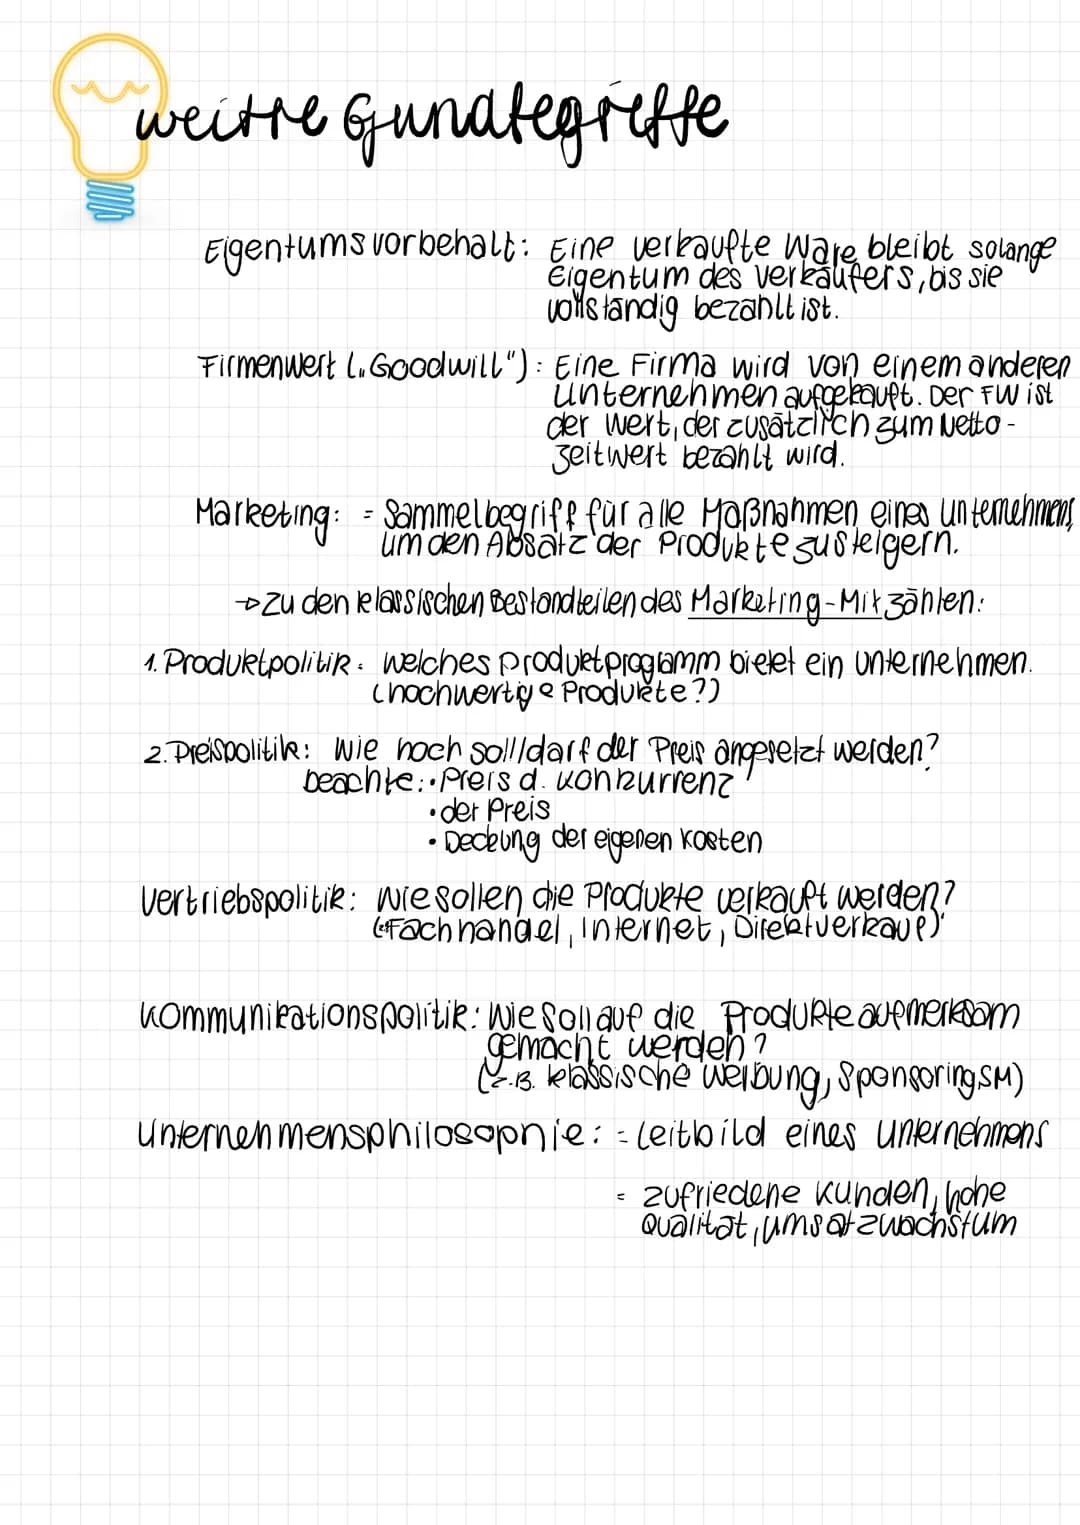 weitre Gundbegriffe
Eigentumsvorbehalt: Eine verkaufte Ware bleibt solange
Eigentum des Verkäufers, bis sie
vollständig bezahlt ist.
Firmenwert („Goodwill"): Eine Firma wird von einem anderen
Unternehmen aufgekauft. Der FW ist
der Wert, der zusätzlich zum Netto-
zeitwert bezahlt wird.
Marketing: = Sammelbegriff für alle Maßnahmen eines Unternehmens,
um den Absatz der Produkte zu steigern.
→ Zu den klassischen Bestandteilen des Marketing-Mix zählen:
1. Produktpolitik: Welches Produktprogramm bietet ein Unternehmen.
(hochwertige Produkte?)
2. Preispolitik: Wie hoch soll/darf der Preis angesetzt werden?
beachte: • Preis d. Konkurrenz
• der Preis
• Deckung der eigenen Kosten
Vertriebspolitik: Wie sollen die Produkte verkauft werden?
(Fachhandel, Internet, Direktverkauf)
Kommunikationspolitik: Wie soll auf die Produkte aufmerksam
gemacht werden?
(z.B. klassische Werbung, Sponsoring, SM)
Unternehmensphilosophie: = Leitbild eines Unternehmens
= zufriedene Kunden, hohe
Qualität, Umsatzwachstum